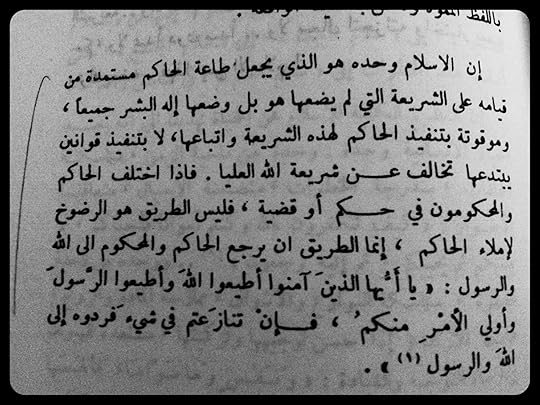 باللفظ
إن الاسلام وحده هو الذي يجعل طاعة الحاكم مستمدة من
قيامه على الشريعة التي لم يضعها هو بل وضعها إله البشر جميعاً ،
وموقوتة بتنفيذ الحاكم لهذه الشريعة واتباعها، لا بتنفيذ قوانين
يبتدعها تخالف عن شريعة الله العليا . فاذا اختلف الحاكم
والمحكومون في حكم أو قضية ، فليس الطريق هو الرضوخ
لإملاء الحاكم ، إنما الطريق ان يرجع الحاكم والمحكوم الى الله
والرسول : « يا أَيُّها الذينَ آمنوا أطيعوا اللهَ وأطيعوا الرَّسولَ
وأولي الأمْرِ منكمْ ، فإنْ تنازَعتم في شيءٍ فَردوه إلى
اللهَ والرسول (١) » .